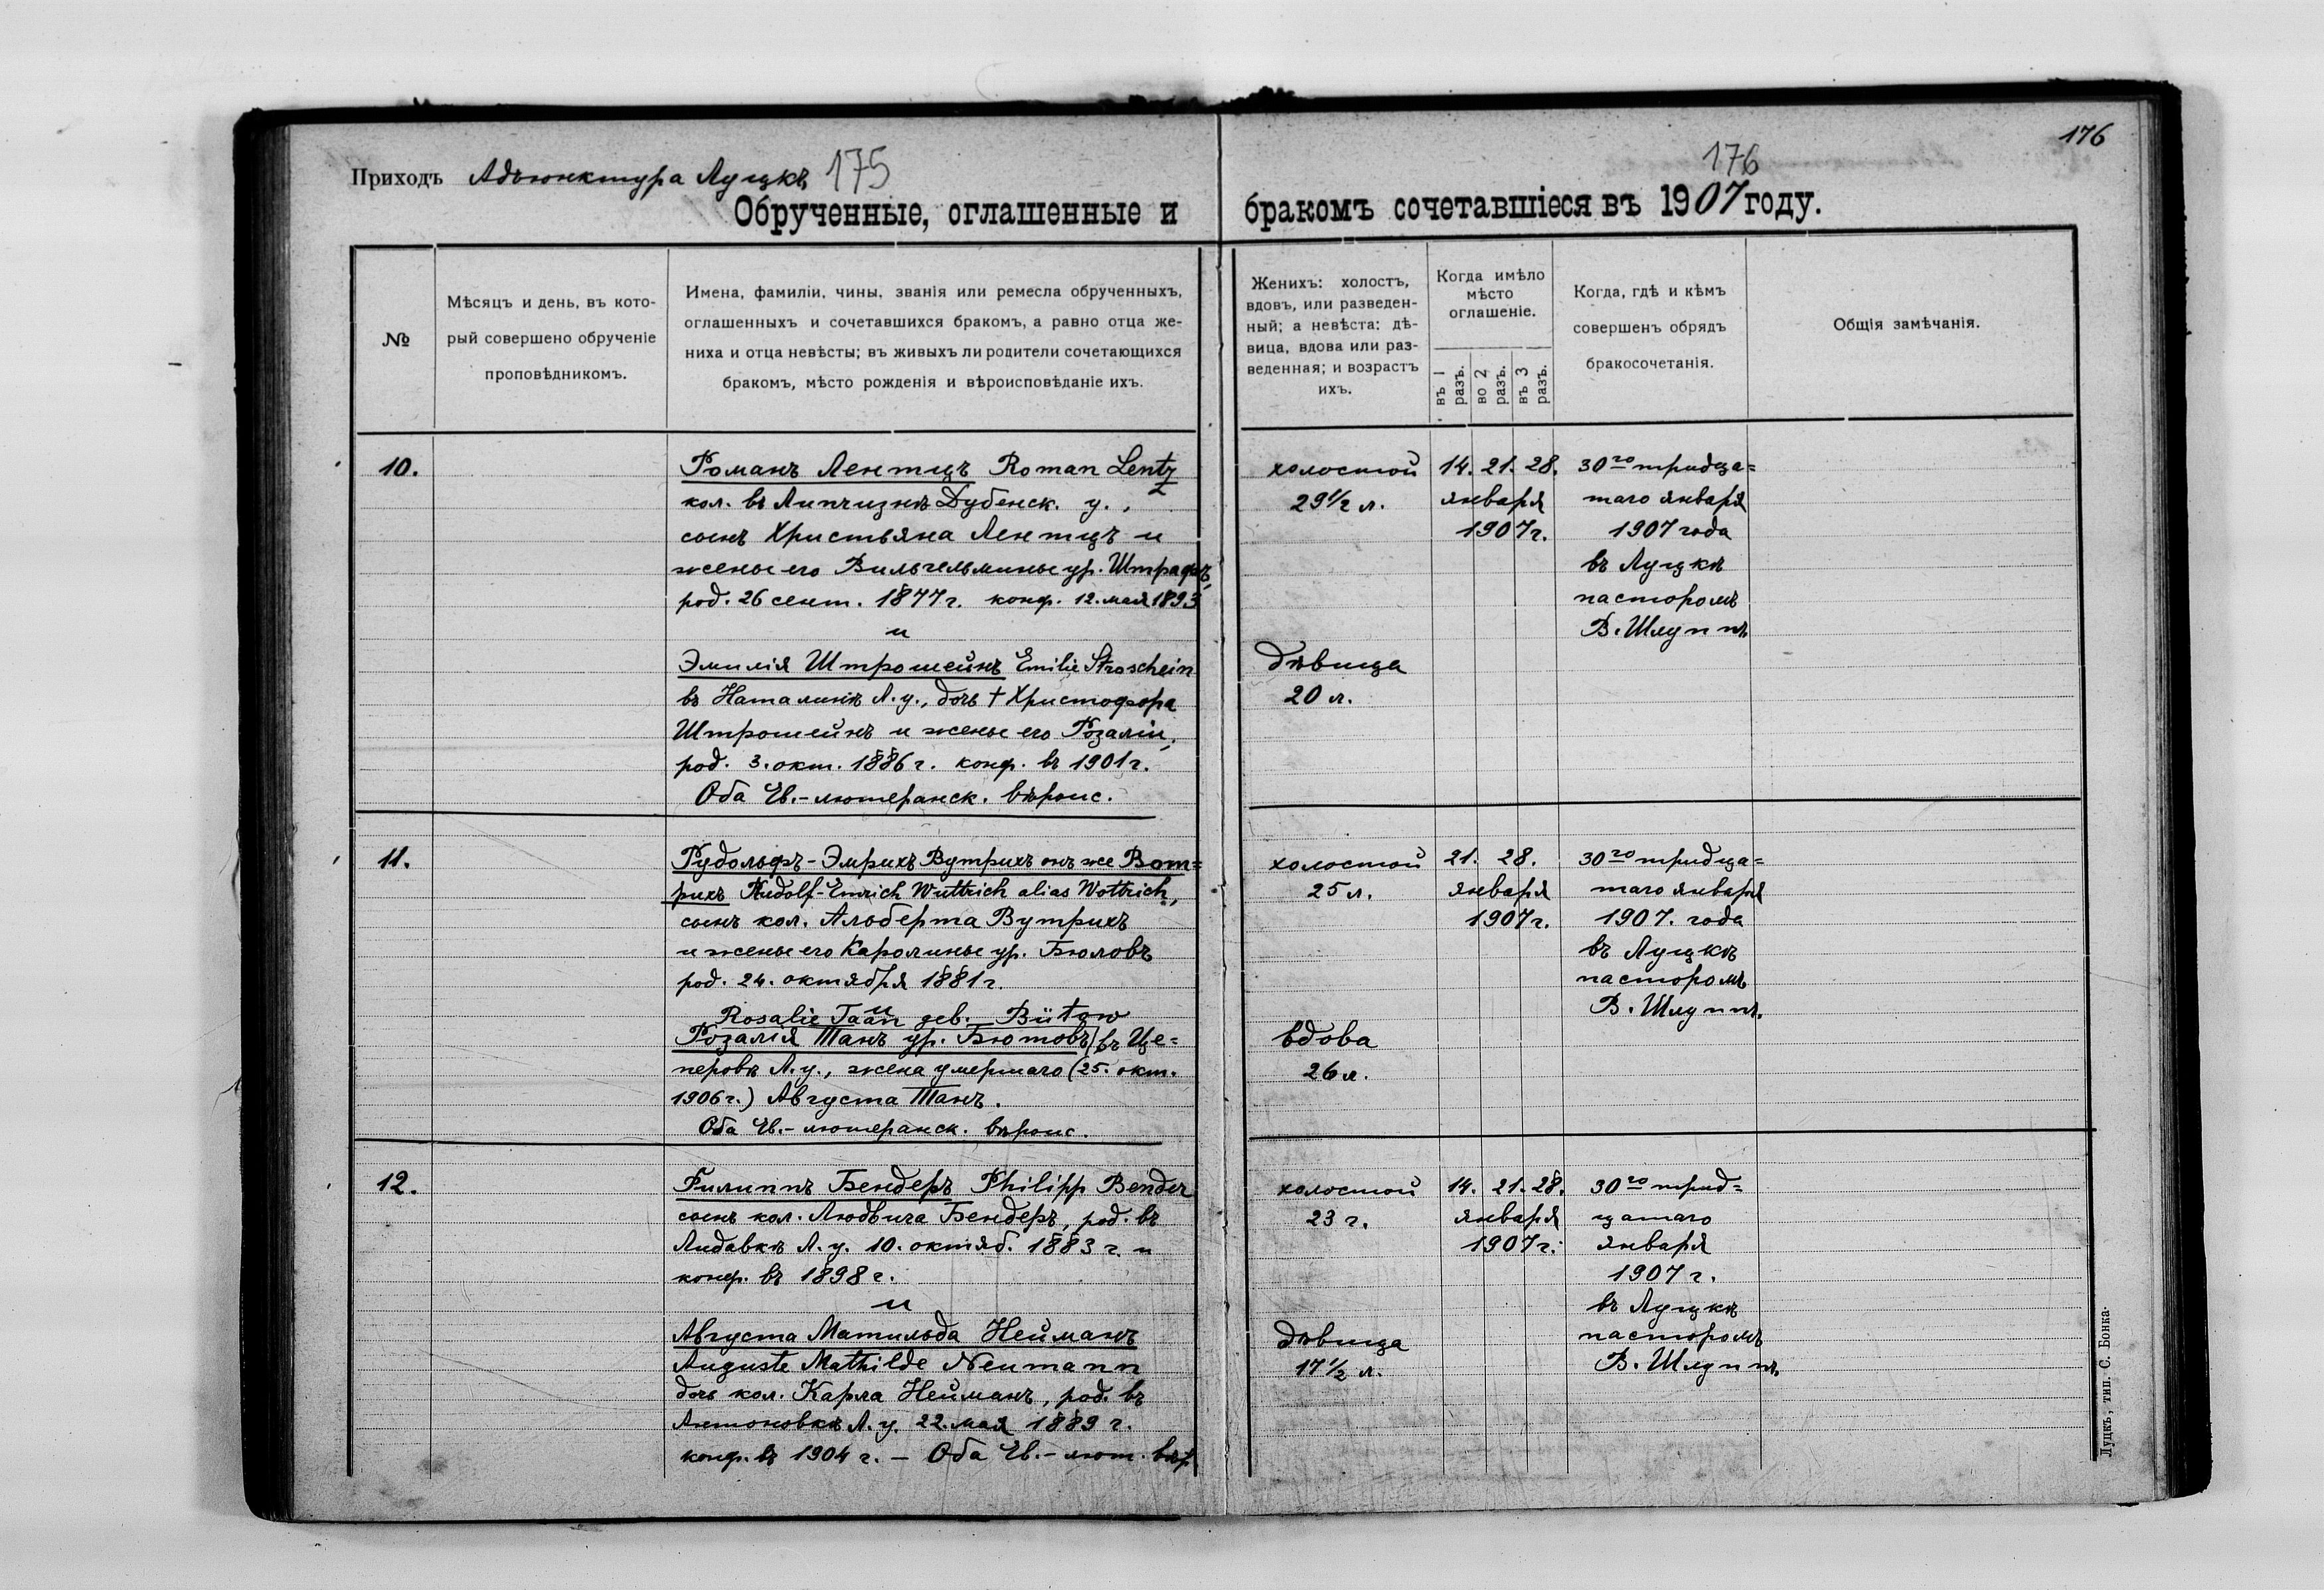 176
Приходъ Адъюнктура Луцкъ 175
176
Обрученные, оглашенные и бракомъ сочетавшіеся въ 1907 году.
№
Мѣсяцъ и день, въ кото-
рый совершено обрученіе
проповѣдникомъ.
Имена, фамиліи, чины, званія или ремесла обрученныхъ,
оглашенныхъ и сочетавшихся бракомъ, а равно отца же-
ниха и отца невѣсты; въ живыхъ ли родители сочетающихся
бракомъ, мѣсто рожденія и вѣроисповѣданіе ихъ.
Женихъ: холостъ,
вдовъ, или разведен-
ный; а невѣста: дѣ-
вица, вдова или раз-
веденная; и возрастъ
ихъ.
Когда имѣло
мѣсто
оглашеніе.
въ 1
разъ.
во 2
разъ.
въ 3
разъ.
Когда, гдѣ и кѣмъ
совершенъ обрядъ
бракосочетанія.
Общія замѣчанія.
10.
Романъ Лентцъ Roman Lentz
кол. въ Липчизнѣ Дубенск. у.,
сынъ Христьяна Лентцъ и
жены его Вильгельмины ур. Штрафъ,
род. 26 сент. 1877 г. конф. 12. мая 1893
и
Эмилія Штрошейнъ Emilie Stroschein
въ Наталинѣ Л. у., дочь † Христофора
Штрошейнъ и жены его Розаліи,
род. 3. окт. 1886 г. конф. въ 1901 г.
Оба Ев.-лютеранск. вѣроис.
холостой
29½ л.
дѣвица
20 л.
14. 21. 28.
января
1907 г.
30го тридца=
таго января
1907 года
въ Луцкѣ
пасторомъ
В. Шлуппъ
11.
Рудольфъ-Эмрихъ Вутрихъ онъ же Вот=
рихъ Rudolf-Emrich Wuttrich alias Wottrich,
сынъ кол. Альберта Вутрихъ
и жены его Каролины ур. Бюловъ
род. 24. октября 1881 г.
и
Rosalie Taan geb. Bütow
Розалія Танъ ур. Бютовъ въ Це=
перовѣ Л. у., жена умершаго (25. окт.
1906 г.) Августа Танъ.
Оба Ев.-лютеранск. вѣроис.
холостой
25 л.
вдова
26 л.
21. 28.
января
1907 г.
30го тридца=
таго января
1907. года
въ Луцкѣ
пасторомъ
В. Шлуппъ.
12.
Филиппъ Бендеръ Philipp Bender
сынъ кол. Людвига Бендеръ, род. въ
Лидавкѣ Л. у. 10. октяб. 1883 г. и
конф. въ 1898 г.
и
Августа Матильда Нейманъ
Auguste Mathilde Neumann
дочь кол. Карла Нейманъ, род. въ
Антоновкѣ Л. у. 22. мая 1889 г.
конф. въ 1904 г. — Оба Ев.-лют. вѣр
холостой
23 г.
дѣвица
17½ л.
14. 21. 28.
января
1907 г.
30го трид=
цатаго
января
1907 г.
въ Луцкѣ
пасторомъ
В. Шлуппъ.
Луцкъ, тип. С. Бонка.